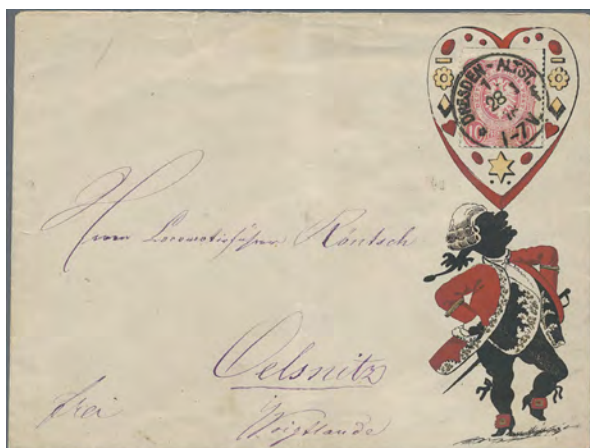 DRESDEN-ALTST.
28
1-7V.
10
Herrn Locomotivführer Röntsch
Oelsnitz
Voigtlande
frei